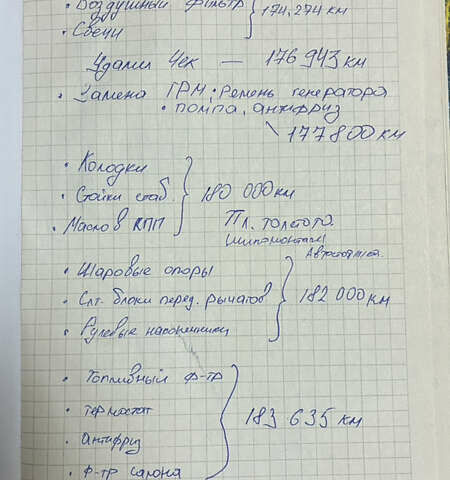 • Воздушный фильтр
• Свечи } 174.274 км
Удали Чек — 176 943 км
• Замена ГРМ, • Ремень генератора
• помпа, антифриз
177 800 км
• Колодки
• Стойки стаб. } 180 000 км
• Масло в КПП
Пл. толстого
(шиномонтаж)
Автостоянка
• Шаровые опоры
• Слт. блоки перед. рычагов } 182 000 км
• Рулевые наконечники
• Топливный ф-тр
• термостат
• Антифриз } 183 635 км
• Ф-тр салона